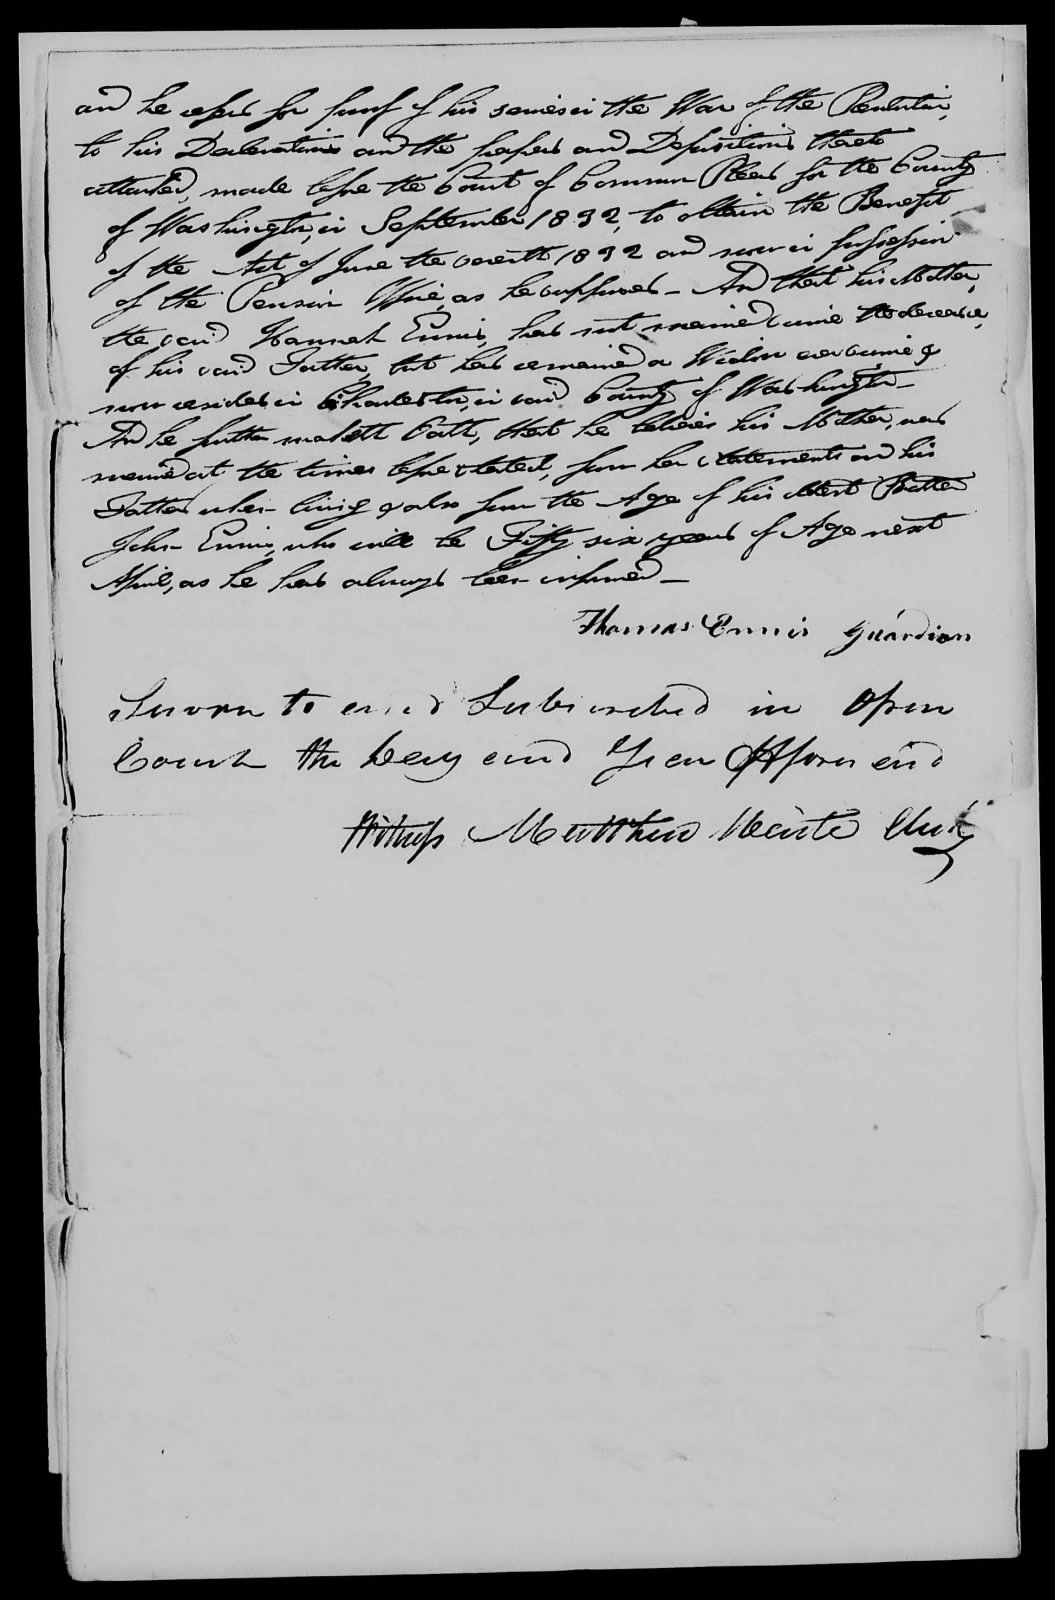 and he refers for proof of his services in the War of the Revolution,
to his Declarations and the papers and Depositions thereto
attached, made before the Court of Common Pleas for the County
of Washington, in September 1832, to obtain the Benefit
of the Act of June the seventh 1832 and now in possession
of the Pension Office, as he supposes - And that his Mother,
the said Hannah Ennis, has not married since the decease,
of his said Father, but has remained a Widow ever since &
now resides in Charlestown, in said County of Washington -
And he further maketh Oath, that he believes his Mother, was
married at the times before stated, from her statements and his
Father when living & also from the Age of his oldest Brother
John Ennis, who will be Fifty six years of Age next
April, as he has always been informed -
Thomas Ennis Guardian
Sworn to and Subscribed in Open
Court the Day and Year Aforesaid
Witness Matthew Waite Clerk